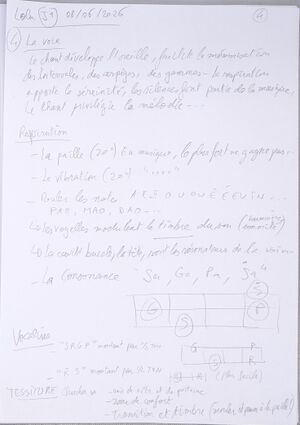 Lola (J1) 08/06/2026
4
4) La voix
Le chant développe l'oreille, facilite la mémorisation
des intervalles, des arpèges, des gammes. La respiration
apporte la sérénité, les silences font partie de la musique.
Le chant privilégie la mélodie...
Respiration
- La paille (20") En musique, le plus fort ne gagne pas...
- Le vibration (20") "....."
- les notes A E I O U OU É È EU IN...
PAO, MAO, DAO...
Les voyelles modulent le timbre du son
La cavité buccale, la tête, sont les résonateurs de la voix...
- La Consonance "Sa, Ga, Pa, Sa"
S
G P
S
Vocalises
"S R G P" montant par 1/2 ton
G P
S R
"R S" montant par 1/2 ton
(Plus facile)
TESSITURE
- zone de confort
- Transition et timbre